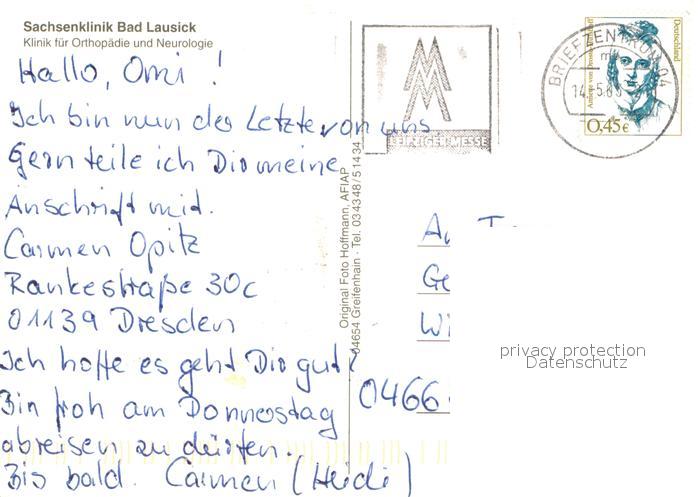 Sachsenklinik Bad Lausick
Klinik für Orthopädie und Neurologie
Hallo, Omi!
Ich bin nun der Letzte von uns
Gern teile ich Dir meine
Anschrift mit.
Carmen Opitz
Rankestraße 30c
01139 Dresden
Ich hoffe es geht Dir gut?
Bin froh am Donnerstag
abreisen zu dürfen.
Bis bald. Carmen (Heidi)
Original Foto Hoffmann, AFIAP
04654 Greifenhain · Tel. 034348/51434
LEIPZIGER MESSE
BRIEFZENTRUM 04
Deutschland
0,45 €
0466
privacy protection
Datenschutz